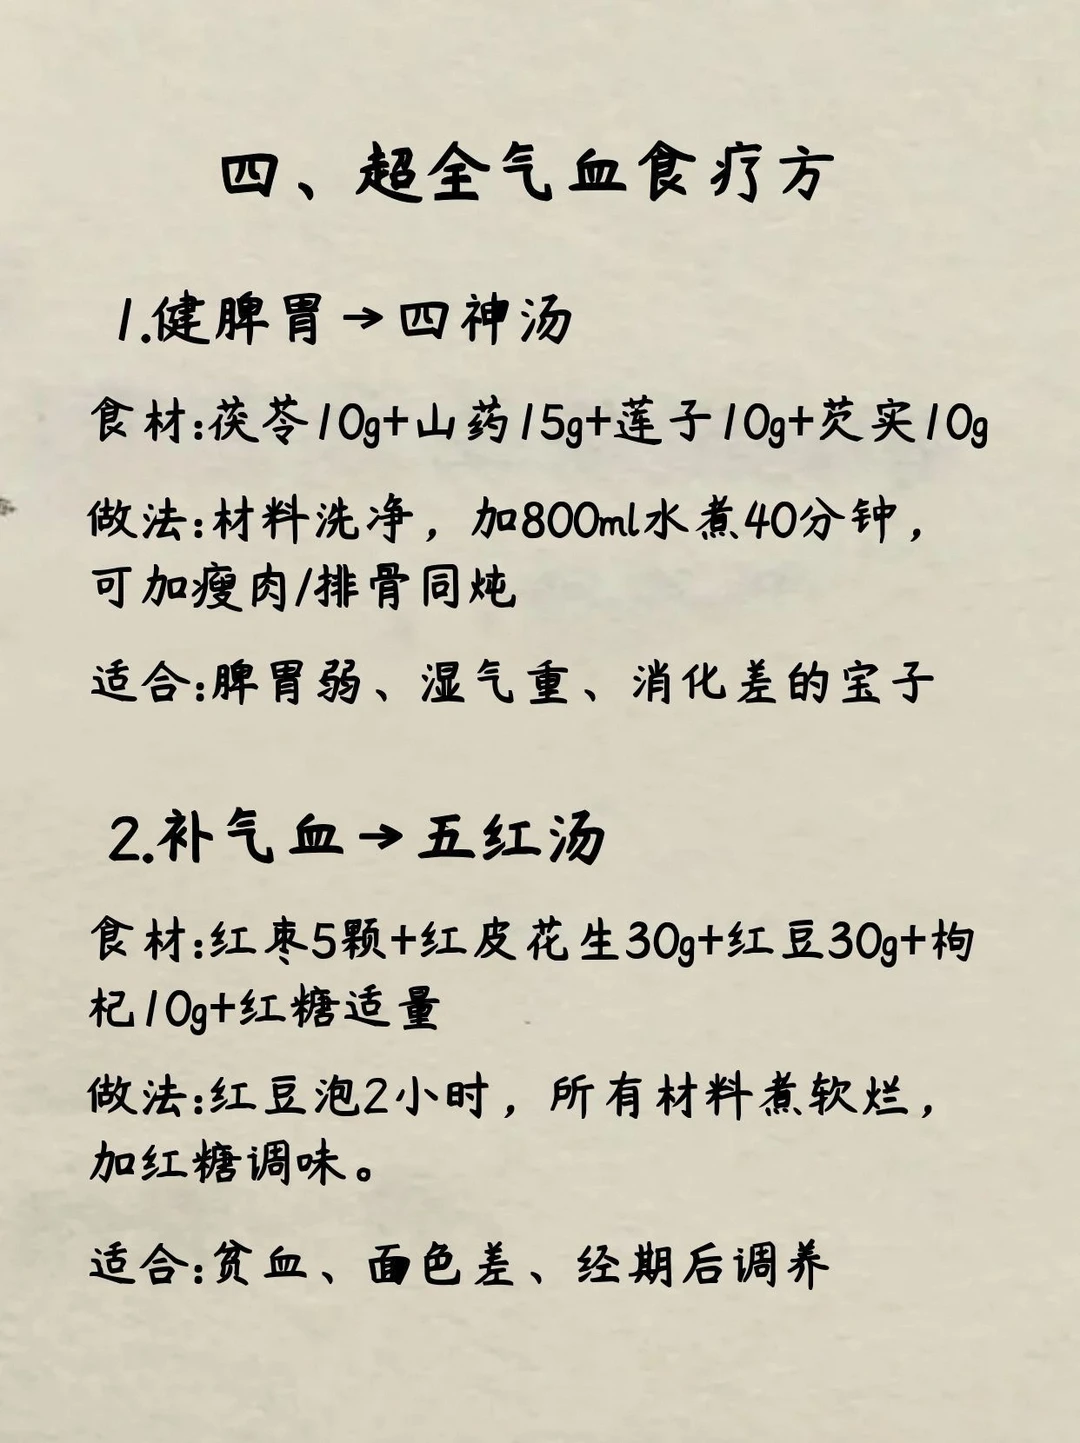 四、超全气血食疗方
1.健脾胃→四神汤
食材:茯苓10g+山药15g+莲子10g+芡实10g
做法:材料洗净，加800ml水煮40分钟，
可加瘦肉/排骨同炖
适合:脾胃弱、湿气重、消化差的宝子
2.补气血→五红汤
食材:红枣5颗+红皮花生30g+红豆30g+枸
杞10g+红糖适量
做法:红豆泡2小时，所有材料煮软烂，
加红糖调味。
适合:贫血、面色差、经期后调养